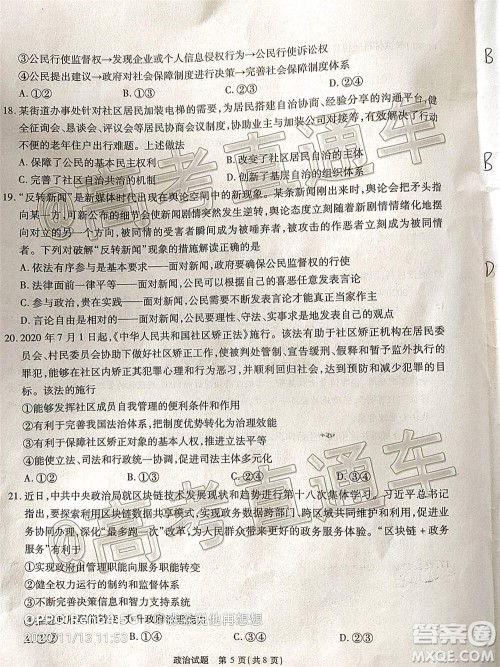 ③公民行使监督权→发现企业或个人信息侵权行为→公民行使诉讼权
④公民提出建议→政府对社会保障制度进行决策→完善社会保障制度体系
A. ①② B. ①③ C. ②④ D. ③④
18. 某街道办事处针对社区居民加装电梯的需要，为居民搭建了开展自治协商、经验分享等的沟通平台，健
全征询会、恳谈会、评议会等居民协商会议制度，协助业主与加装公司签订协议等，有效解决了行动
不便的老年住户出行难题。上述做法
A. 保障了公民的基本民主权利 B. 拓展了社区自治的主体
C. 完善了社区自治共治的机制 D. 创新了基层自治的组织体系
19. “反转新闻”是新媒体时代出现在舆论空间中的新现象。某条新闻刚出来时，舆论会把矛头指
向某一方，可新公布的细节会使新闻剧情发生扭转，舆论态度立刻随着新闻情绪化地作
相反方向的转变，前一个舆论声援的对象瞬间被人唾弃，而被千夫所指的对象立刻成为被
同情者。下列对破解“反转新闻”现象的措施解读正确的是
A. 依法有序参与是基本要求——面对新闻，政府要确保公民监督权的行使
B. 法律面前一律平等——面对新闻，公民可以根据自己的喜恶任意发表言论
C. 舆论监督是有力武器——面对新闻，公民可以充分表达自己的意愿
D. 言论自由不可滥用——面对新闻，公民要对自己发表的言论负责
20. 2020 年 7 月 1 日起，《中华人民共和国社区矫正法》施行。该法有助于社区矫正机构在居民委
员会、村民委员会协助下做好社区矫正工作，使得被判处管制、宣告缓刑、假释和监外执行的
罪犯，能够在社区内矫正其犯罪心理和行为恶习，促进其顺利回归社会，预防和减少重新犯
罪。该法的施行
①能够发挥社区成员自我管理的便利条件和作用
②有利于完善我国法律体系，促进严格执法
③有利于保障社区矫正对象的基本人权，推进实质平等
④能使立法、司法和行政统一起来，促进司法主体多元化
A. ①② B. ①③ C. ②④ D. ③④
21. 近日，中共中央政治局就区块链技术发展现状和趋势进行第十八次集体学习。习近平总书记指
出，要探索利用区块链数据共享模式，实现政务数据跨部门、跨区域共同维护和利用，促进业
务协同办理，深化“最多跑一次”改革，为人民群众带来更好的政务服务体验。“区块链＋政务
服务”有利于
①实现政府由管理职能向服务职能转变
②健全权力运行的制约和监督体系
③不断完善决策信息和智力支持系统
政治试题 第 5 页（共 8 页）
B
B
D
@高考直通车
@高考直通车
2020/11/13 11:53